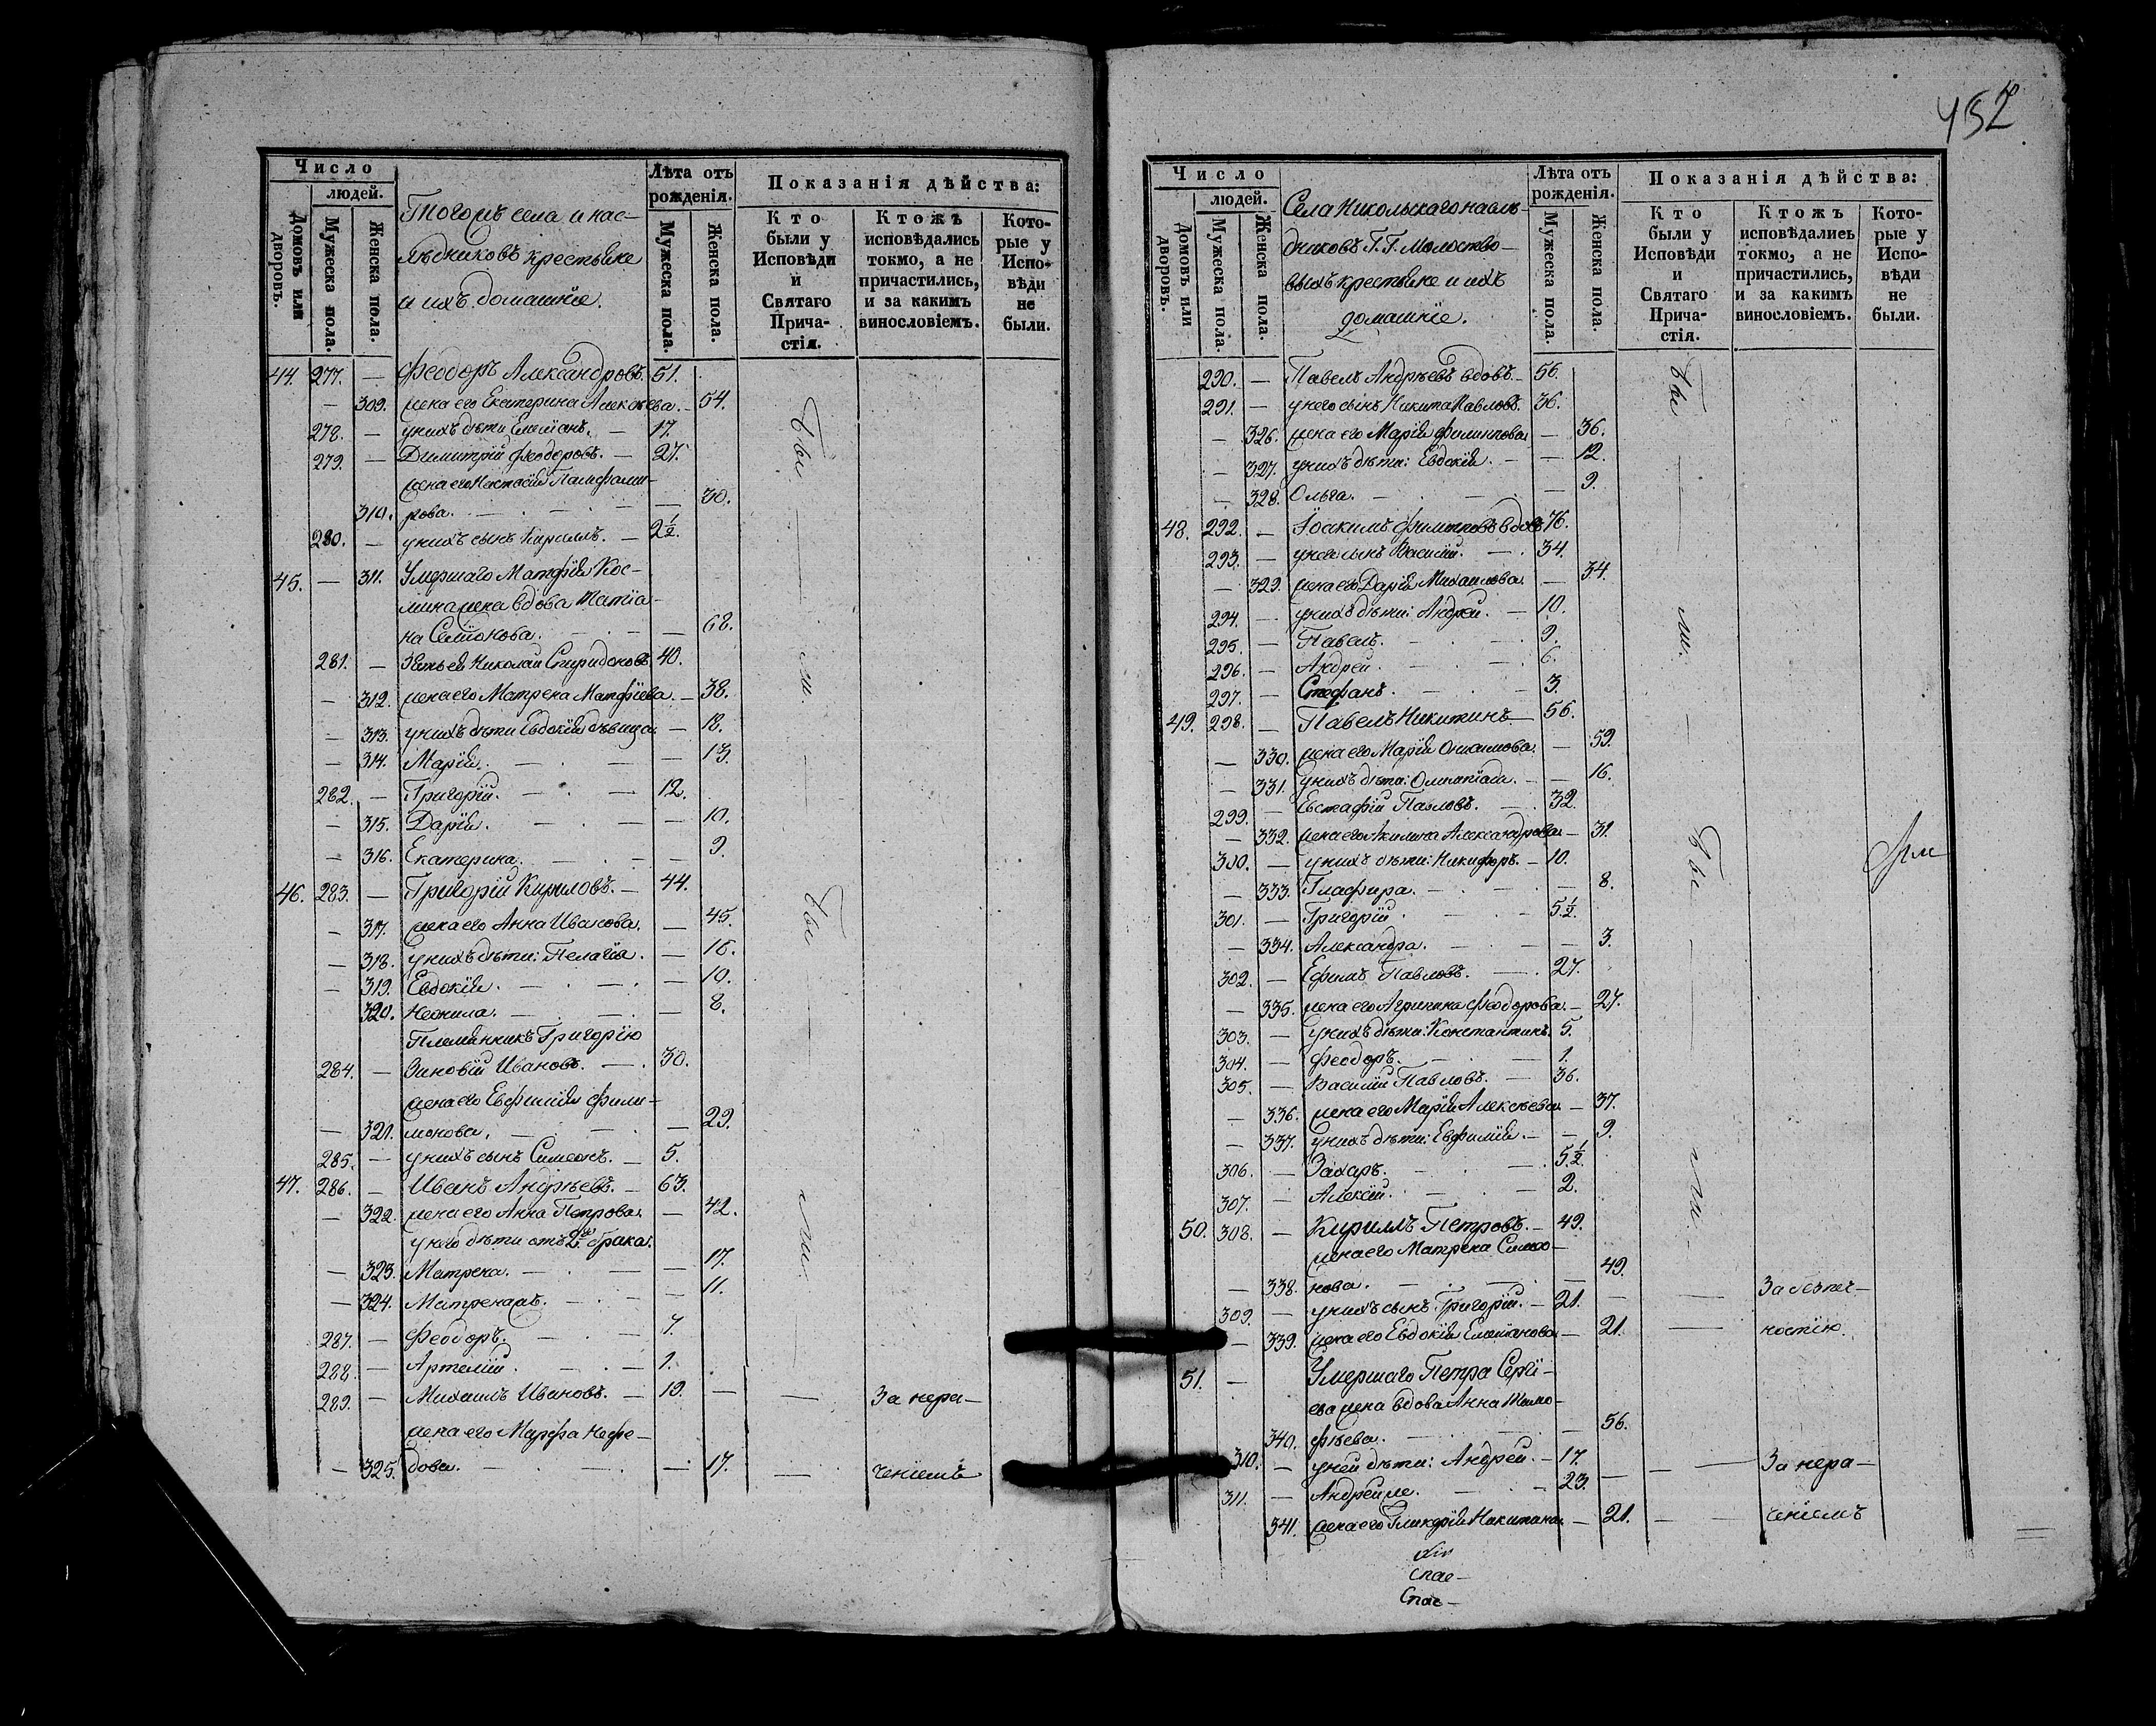 452
Число
людей.
Домовъ или дворовъ.
Мужеска пола.
Женска пола.
Тогожъ села и нас-
лѣдниковъ крестьяне
и ихъ домашніе.
Лѣта отъ рожденія.
Мужеска пола.
Женска пола.
Показанія дѣйства:
Кто были у Исповѣди и Святаго Прича-стія.
Ктожъ исповѣдались токмо, а не причастились, и за какимъ винословіемъ.
Кото-рые у Испо-вѣди не были.
44. 277. — Феодоръ Александровъ. 51.
— 309. жена его Екатерина Алексѣева. — 54.
278. — у нихъ дѣти Емельянъ. — 17.
279. — Димитрій Феодоровъ. — 27.
жена его Настасія Памфами-
310. рова. — 30.
280. — у нихъ сынъ Кириллъ. — 2½.
45. — 311. Умершаго Матфія Кос-
мина жена вдова Татіа-
на Семіонова. — 68.
281. — Зять ея Николай Спиридоновъ 40.
— 312. жена его Матрена Матфіева. — 38.
— 313. у нихъ дѣти Евдокія дѣвица. — 18.
— 314. Марія. — 13.
282. — Григорій. — 12.
— 315. Дарія. — 10.
— 316. Екатерина. — 9.
46. 283. — Григорій Кириловъ. — 44.
— 317. жена его Анна Иванова. — 45.
— 318. у нихъ дѣти: Пелагія. — 16.
— 319. Евдокія. — 10.
320. Неонила. — 8.
Племянникъ Григорію
284. — Зиновій Ивановъ. — 30.
жена его Евфимія Фили-
— 321. монова. — 29.
285. — у нихъ сынъ Симеонъ. — 5.
47. 286. — Иванъ Андрѣевъ. — 63.
— 322. жена его Анна Петрова. — 42.
у него дѣти отъ 2го брака.
— 323. Матрена. — 17.
— 324. Матренажъ. — 11.
287. — Феодоръ. — 7.
288. — Артемій. — 1.
289. — Михаилъ Ивановъ. — 19. — — За нера-
жена его Марфа Нефе-
— 325. дова. — 17. — ченіемъ
Бы — ли.
Бы — ли.
Число
людей.
Домовъ или дворовъ.
Мужеска пола.
Женска пола.
Села Никольскаго наслѣ-
дниковъ Г.Г. Молоство-
выхъ крестьяне и ихъ
домашніе.
Лѣта отъ рожденія.
Мужеска пола.
Женска пола.
Показанія дѣйства:
Кто были у Исповѣди и Святаго Прича-стія.
Ктожъ исповѣдались токмо, а не причастились, и за какимъ винословіемъ.
Кото-рые у Испо-вѣди не были.
290. — Павелъ Андрѣевъ вдовъ. — 56.
291. — у него сынъ Никита Павловъ. 36.
— 326. жена его Марія Филиппова. — 36.
— 327. у нихъ дѣти: Евдокія. — 12.
— 328. Ольга. — 9.
48. 292. — Іоакимъ вдовъ 76.
293. — у него сынъ Василій. — 34.
— 329. жена его Дарія Михаилова. — 34.
294. — у нихъ дѣти: Андрей. — 10.
295. — Павелъ. — 9.
296. — Андрей. — 6.
297. — Стефанъ. — 3.
49. 298. — Павелъ Никитинъ — 56.
— 330. жена его Марія — 59.
— 331. у нихъ дѣти: Олимпіада. — 16.
299. — Евстафій Павловъ. — 32.
— 332. жена его Акилина Александрова — 31.
300. — у нихъ дѣти: Никифоръ. — 10.
— 333. Глафира. — 8.
301. — Григорій. — 5½.
— 334. Александра. — 3.
302. — Ефимъ Павловъ. — 27.
— 335. жена его Агрипина Феодорова. — 27.
303. — у нихъ дѣти: Константинъ. 5.
304. — Феодоръ. — 1.
305. — Василій Павловъ. — 36.
— 336. жена его Марія Алексѣева — 37.
— 337. у нихъ дѣти: Евфимія. — 9.
306. — Захаръ. — 5½.
307. — Алексій. — 2.
50. 308. — Кирилъ Петровъ. — 49.
жена его Матрена Симео-
— 338. нова. — 49.
309. — у нихъ сынъ Григорій. — 21. — — За лѣност-
— 339. жена его Евдокія Емельянова — 21. — ностію.
51. — Умершаго Петра Сергі-
ева жена вдова Анна Тимо-
340. фѣева. — 56.
310. — у ней дѣти: Андрей. — 17. — — За нера-
311. — Андрейже. — 23. —
341. жена его Гликерія Никитина. — 21. — — ченіемъ
Бы — ли.
Бы — ли.
Спас-
Спас-